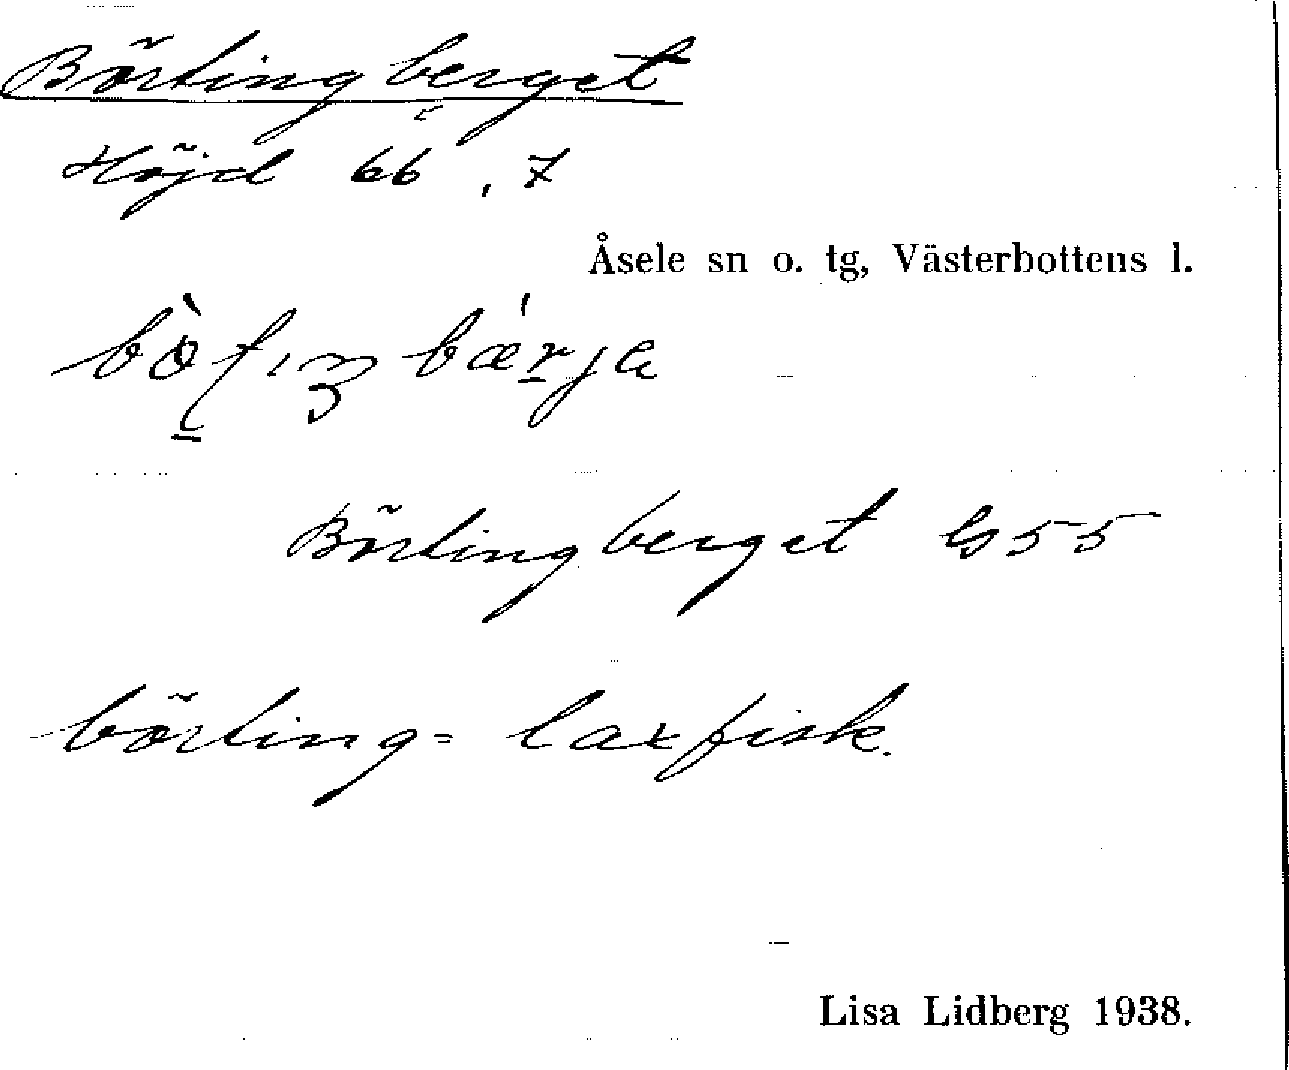 Börtingberget
Höjd 66, 7
Åsele sn o. tg, Västerbottens l.
Börtingberget Gs 55
börting = laxfisk.
Lisa Lidberg 1938.